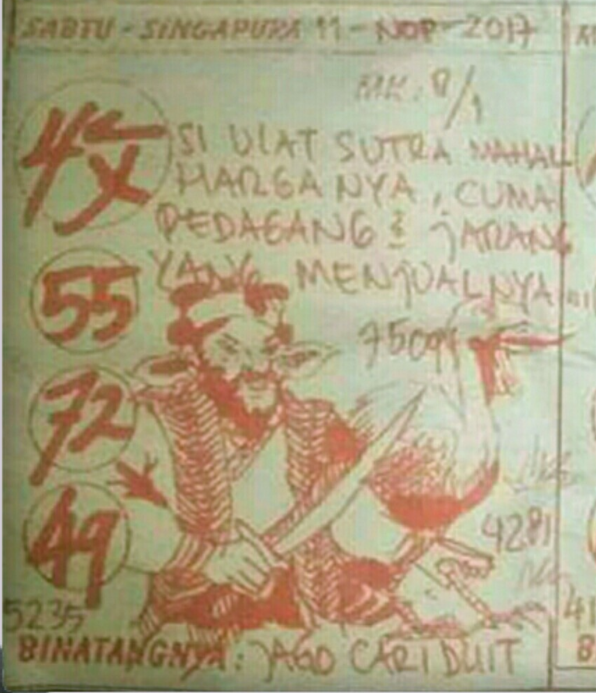 SABTU - SINGAPURA 11 - NOP - 2017
MK: 8/1
4X
SI ULAT SUTRA MAHAL
HARGANYA, CUMA
PEDAGANG & JARANG
YANG MENJUALNYA...
55
7509
72
49
4281
5235
BINATANGNYA: JAGO CARI DUIT